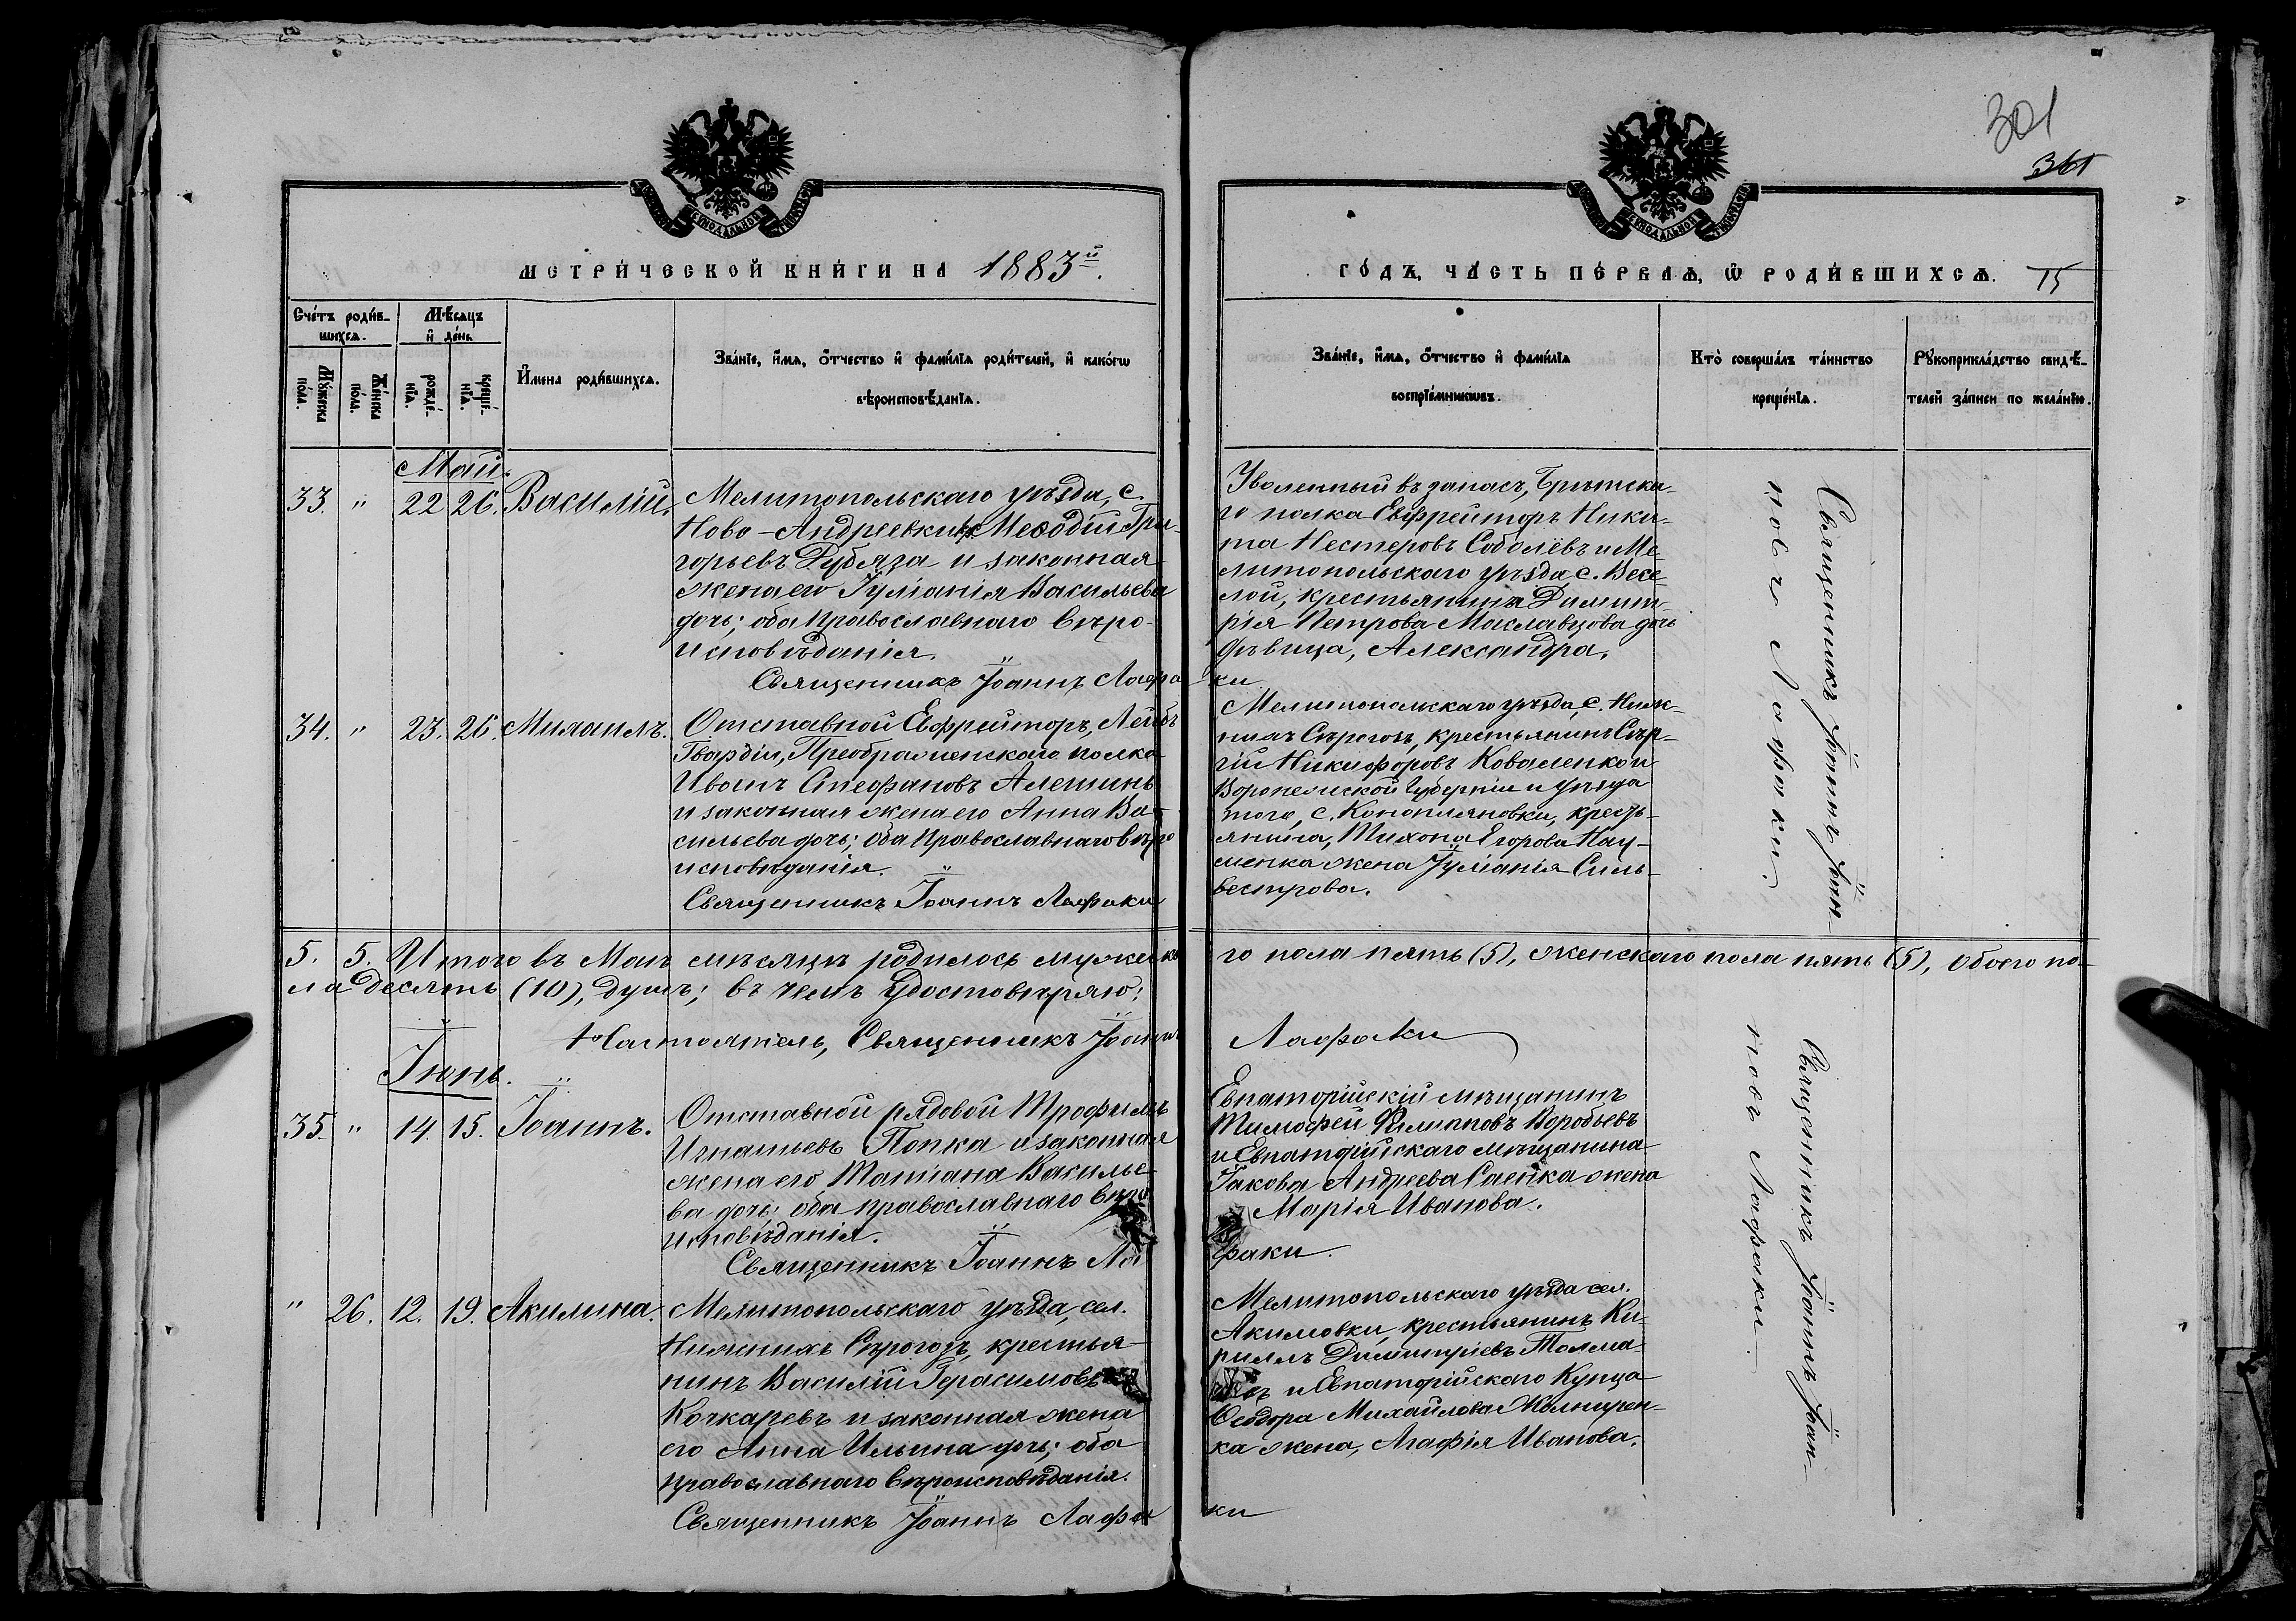 301
361
СѴНОДАЛЬНОЙ
СѴНОДАЛЬНОЙ
МЕТРИ́ЧЕСКОЙ КНИ́ГИ НА 1883й.
ГО́ДЪ, ЧА́СТЬ ПЕ́РВАѦ, Ѡ҆ РОДИ́ВШИХСѦ. 75
Сче́тъ роди́в-
шихсѧ.
Мѣ́сѧцъ
и҆ де́нь
Мꙋ́жеска
по́ла.
Же́нска
по́ла.
рожде́-
нїѧ.
креще́-
нїѧ.
И҆мена роди́вшихсѧ.
Зва́нїе, и҆́мѧ, ѻ҆́тчество и҆ фами́лїѧ роди́телей, и҆ како́гѡ
вѣроисповѣ́данїѧ.
Зва́нїе, и҆́мѧ, ѻ҆́тчество и҆ фами́лїѧ
воспрїе́мникѡвъ.
Кто̀ соверша́лъ та́инство
креще́нїѧ.
Рꙋкоприкла́дство свидѣ́-
телей за́писи по жела́нїю.
Май.
33. " 22 26. Василій.
Мелитопольскаго уѣзда, с.
Ново-Андреевки Меѳодій Гри-
горьевъ Дубяга и законная
жена его Іуліанія Васильева
дочь; оба Православнаго Вѣро-
исповѣданія.
Священникъ Іоаннъ Лафа
ки
Уволенный въ запасъ, Брѣтска-
го полка Ефрейторъ Ники-
та Нестеровъ Соболёвъ и Ме-
литопольскаго уѣзда, с. Весе-
лой, крестьянина Димит-
рія Петрова Маславцова дочь
дѣвица, Александра.
Священникъ Іоаннъ Іоан-
новъ Лафаки.
34. " 23. 26. Михаилъ.
Отставной Ефрейторъ, Лейбъ
Гвардіи, Преображенскаго полка
Иванъ Стефановъ Алешинъ
и законная жена его Анна Ва-
сильева дочь; оба Православнаго вѣро
исповѣданія.
Священникъ Іоаннъ Лафаки
Мелитопольскаго уѣзда, с. Ниж-
нихъ Сѣрогозъ, крестьянинъ Сер-
гій Никифоровъ Коваленко и
Воронежской Губерніи и уѣзда
того, с. Конопляновки, кресть-
янина, Тихона Егорова Нау-
менка жена Іуліанія Силь-
вестрова.
5. 5. Итого въ Маѣ мѣсяцѣ родилось мужеска
го пола пять (5), женскаго пола пять (5), обоего по-
ла десять (10), душъ; въ чемъ удостовѣряю:
Настоятель, Священникъ Іоаннъ
Лафаки
Іюнь.
35. " 14. 15. Іоаннъ.
Отставной рядовой Трофимъ
Игнатьевъ Попка и законная
жена его Татіана Василье-
ва дочь; оба православнаго вѣро
исповѣданія.
Священникъ Іоаннъ Ла
факи.
Евпаторійскій мѣщанинъ
Тимофей Филипповъ Воробьевъ
и Евпаторійскаго мѣщанина
Іакова Андреева Саенка жена
Марія Иванова.
Священникъ Іоаннъ Іоан-
новъ Лафаки.
" 26. 12. 19. Акилина.
Мелитопольскаго уѣзда, сел.
Нижнихъ Сѣрогозъ, крестья-
нинъ Василій Герасимовъ
Кочкаревъ и законная жена
его Анна Ильина дочь; оба
православнаго вѣроисповѣданія.
Священникъ Іоаннъ Лафа
ки
Мелитопольскаго уѣзда сел.
Акимовки, крестьянинъ Ки-
риллъ Димитріевъ Толма-
и Евпаторійскаго Купца
Ѳеодора Михайлова
ка жена, Агафія Иванова.